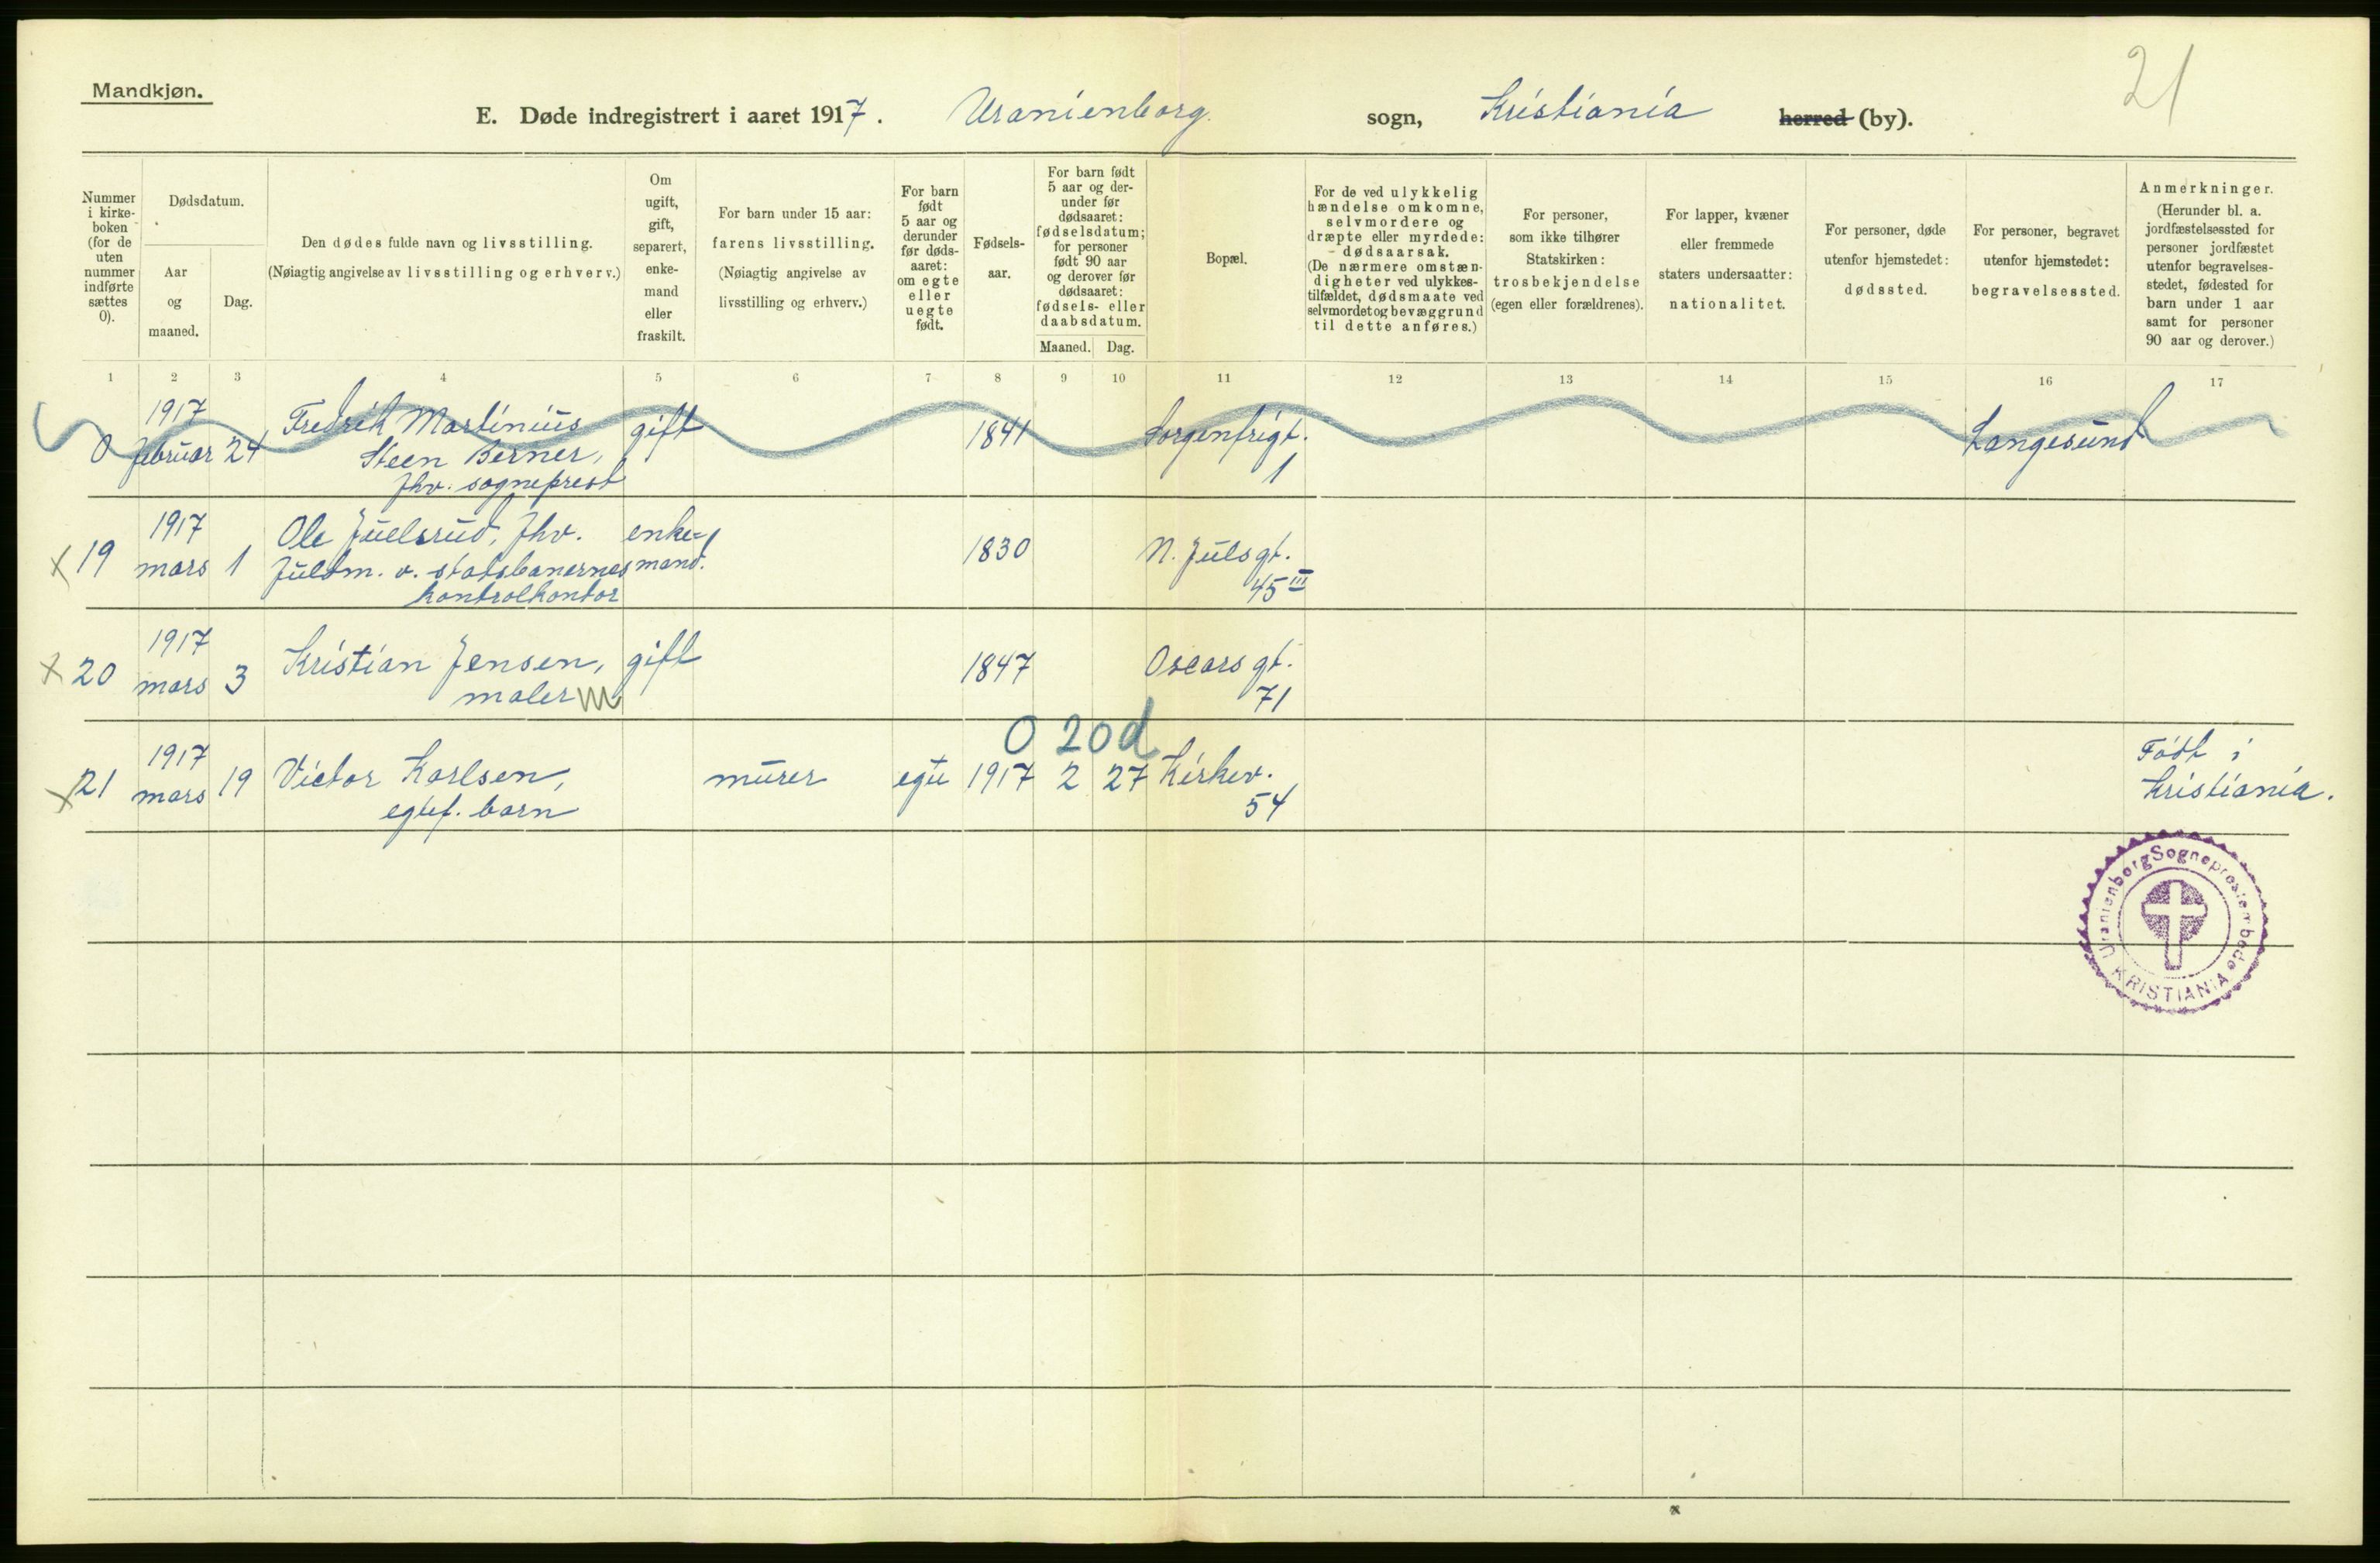 21
Mandkjøn.
E. Døde indregistrert i aaret 1917. Uranienborg sogn, Kristiania herred (by).
Nummer
i kirke-
boken
(for de
uten
nummer
indførte
sættes
0).
Dødsdatum.
Aar
og
maaned.
Dag.
Den dødes fulde navn og livsstilling.
(Nøiagtig angivelse av livsstilling og erhverv.)
Om
ugift,
gift,
separert,
enke-
mand
eller
fraskilt.
For barn under 15 aar:
farens livsstilling.
(Nøiagtig angivelse av
livsstilling og erhverv.)
For barn
født
5 aar og
derunder
før døds-
aaret:
om egte
eller
uegte
født.
Fødsels-
aar.
For barn født
5 aar og der-
under før
dødsaaret:
fødselsdatum;
for personer
født 90 aar
og derover før
dødsaaret:
fødsels- eller
daabsdatum.
Maaned. Dag.
Bopæl.
For de ved ulykkelig
hændelse omkomne,
selvmordere og
dræpte eller myrdede:
dødsaarsak.
(De nærmere omstæn-
digheter ved ulykkes-
tilfældet, dødsmaate ved
selvmordet og bevæggrund
til dette anføres.)
For personer,
som ikke tilhører
Statskirken:
trosbekjendelse
(egen eller forældrenes).
For lapper, kvæner
eller fremmede
staters undersaatter:
nationalitet.
For personer, døde
utenfor hjemstedet:
dødssted.
For personer, begravet
utenfor hjemstedet:
begravelsessted.
Anmerkninger.
(Herunder bl. a.
jordfæstelsessted for
personer jordfæstet
utenfor begravelses-
stedet, fødested for
barn under 1 aar
samt for personer
90 aar og derover.)
1 2 3 4 5 6 7 8 9 10 11 12 13 14 15 16 17
1917 Fredrik Martinius
0 februar 24 Steen Berner, gift 1841 Sorgenfrigt. Langesund
fhv. sogneprest 1
1917 Ole Juelsrud, fhv. enke-
x 19 mars 1 fuldm. v. statsbanernes mand. 1830 N. Julsgt.
kontrolkontor 45 III
1917
x 20 mars 3 Kristian Jensen, gift 1847 Oscarsgt.
maler m 71
0 20 d
1917 Født i
x 21 mars 19 Victor Karlsen, murer egte 1917 2 27 Kirkev. Kristiania.
egtef. barn 54
Uranienborg Sogneprestembede
KRISTIANIA